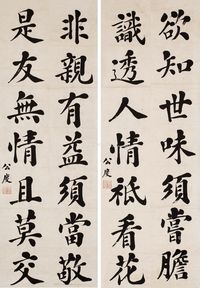 欲知世味須嘗膽
識透人情祗看花
公度
非親有益須當敬
是友無情且莫交
公度